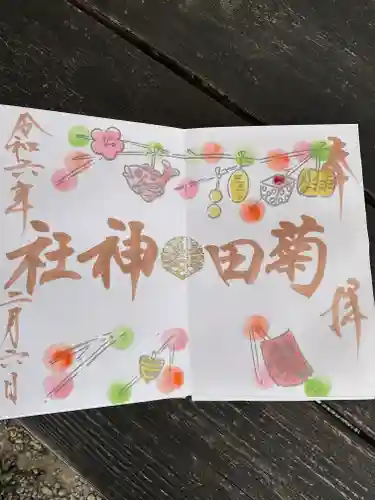 奉拝
菊田神社
令和六年
二月六日